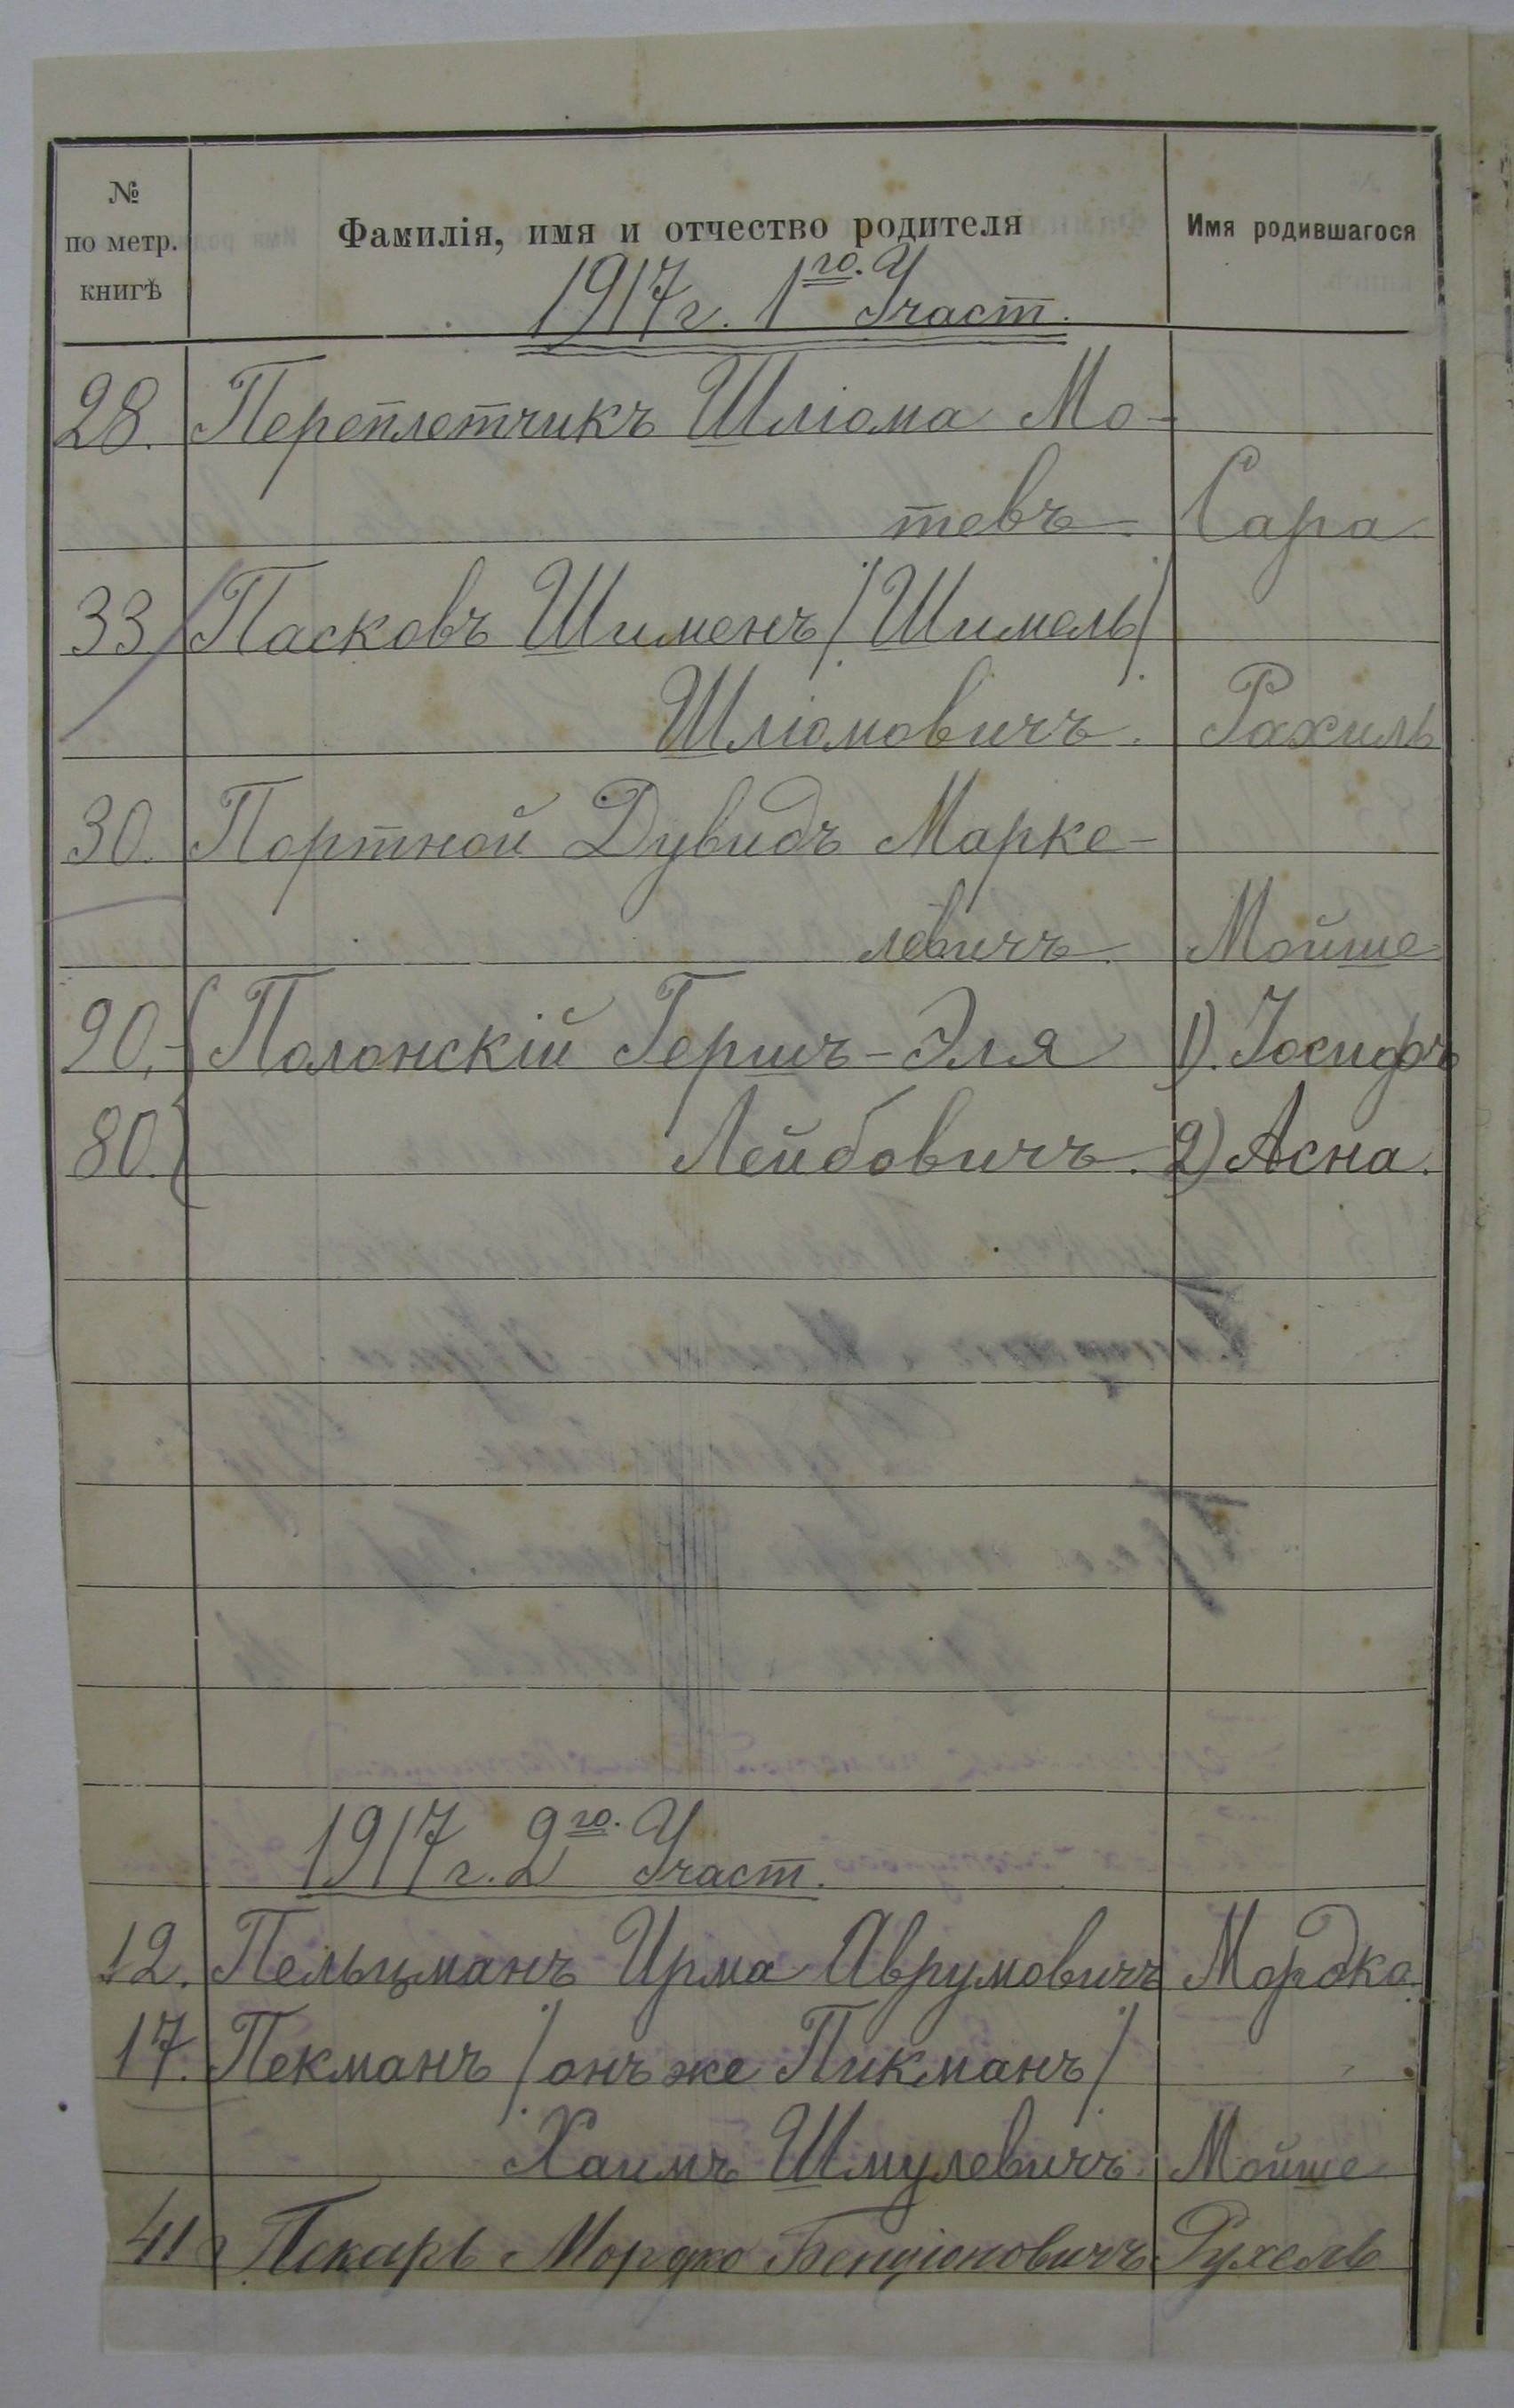 № по метр. книгѣ
Фамилія, имя и отчество родителя
Имя родившагося
1917 г. 1го. Участ.
28. Переплетчикъ Шліома Мо-
тевъ. Сара
33 Пасковъ Шименъ /Шимель/
Шліомовичъ. Рахиль
30. Портной Дувидъ Марке-
левичъ. Мойше
20, Полонскій Гершъ-Эля 1). Іосифъ
80. Лейбовичъ. 2) Асна.
1917 г. 2го. Участ.
12. Пельцманъ Ирма Аврумовичъ Мордко.
17. Пекманъ /онъ же Пикманъ/
Хаимъ Шмулевичъ. Мойше
41 Пекарь Мордко Бенціоновичъ Рухель